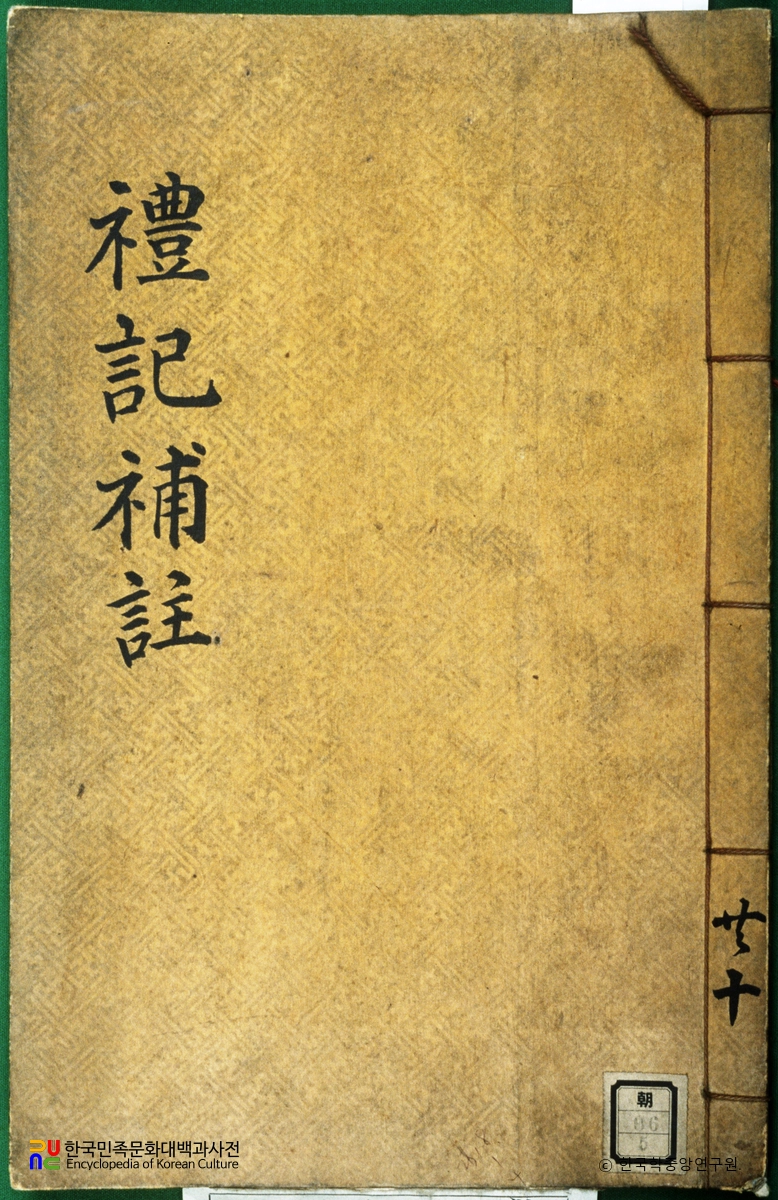 禮記補註
共十
朝
06
5
한국민족문화대백과사전
Encyclopedia of Korean Culture
© 한국학중앙연구원